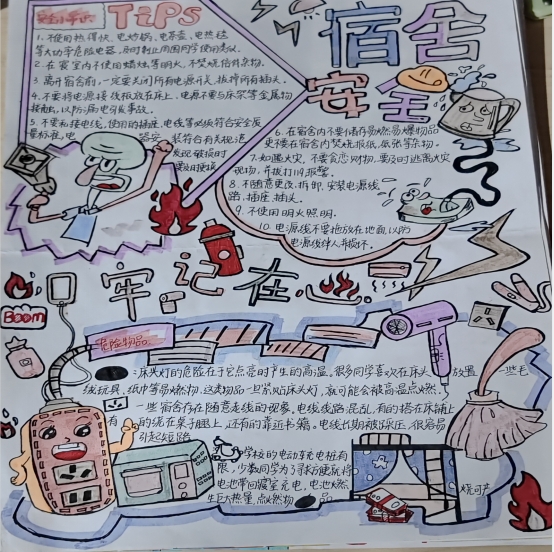 安全小常识 TiPS
宿舍
安全
1.不使用热得快、电炒锅、电茶壶、电热毯
等大功率危险电器,及时制止周围同学使用类似。
2.在寝室内不使用蜡烛等明火,不焚烧信件杂物。
3.离开宿舍前,一定要关闭所有电源开关,拔掉所有插头。
4.不要将电源接线板放在床上,电源不要与床架等金属物
接触,以防漏电伤害事故。
5.不要私接电线,使用的插座、电线等必须符合安全质
量标准,电 路安 装符合有关规范
发现破损时
要及时更换
6.在宿舍内不要储存易燃易爆物品
更不要在宿舍内焚烧报纸、纸张等杂物。
7.如遇火灾,不要贪恋财物,要及时逃离火灾
现场,并拨打119报警。
8.不随意更改、拆卸、安装电源线
路、插座、插头。
9.不使用明火照明。
10.电源线不要拖放在地面,以防
电源线绊人并损坏。
牢记在心
Boom
危险物品
:床头灯的危险在于它点亮时产生的高温。很多同学喜欢在床头 放置 一些毛
绒玩具,纸巾等易燃物,这类物品一旦紧贴床头灯,就可能会被高温点燃。
一些宿舍存在随意走线的现象,电线线路混乱,有的搭在床铺上
有 的绕在桌子腿上,还有的靠近书籍。电线长期被踩压,很容易
引起短路
学校的电动车充电桩有
限,少数同学为了寻求方便就将
电池带回寝室充电,电池燃
生巨大热量,点燃物 品
烧可产